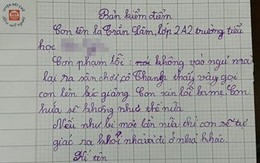 Bản kiểm điểm
Con tên là Trần Lâm, lớp 2A2 trường tiểu
học
Con phạm lỗi: noi không vào ngủ mà
lại ra sân chơi cô Thanh thấy vậy gọi
con lên bục giảng. Con xin lỗi ba mẹ. Con
hứa sẽ không như thế nữa
Nếu như bị mời lần nữa thì con sẽ tự
giác ra khỏi nhà và đi ở nhà khác.
Kí tên